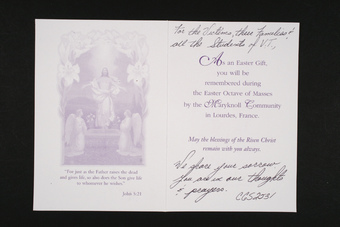 "For just as the Father raises the dead
and gives life, so also does the Son give life
to whomever he wishes."
John 5:21
For the Victims, these Families &
all the Students of VT,
As an Easter Gift,
you will be
remembered during
the Easter Octave of Masses
by the Maryknoll Community
in Lourdes, France.
May the blessings of the Risen Christ
remain with you always.
We share your sorrow
You are in our thoughts
& prayers.